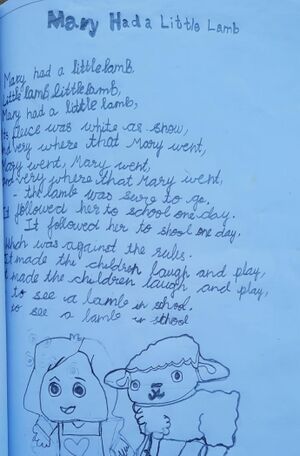 Mary Had a Little Lamb
Mary had a little lamb,
Little lamb, little lamb,
Mary had a little lamb,
Its fleece was white as snow,
And very where that Mary went,
Mary went, Mary went,
And very where that Mary went,
the lamb was sure to go.
It followed her to school one day.
It followed her to shool one day.
Which was against the rules.
It made the children laugh and play,
It made the children laugh and play,
to see a lamb in school.
to see a lamb in school